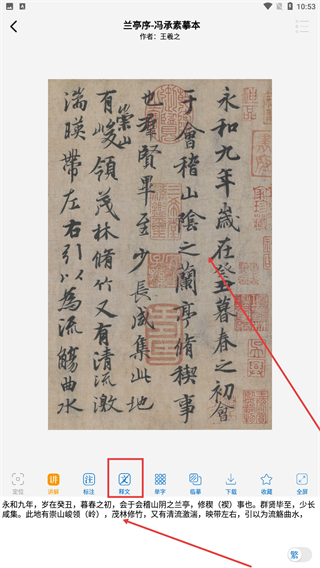 10:53
兰亭序-冯承素摹本
作者：王羲之
永和九年歲在癸丑暮春之初會
于會稽山陰之蘭亭脩稧事
也羣賢畢至少長咸集此地
有崇山峻領茂林脩竹又有清流激
湍暎帶左右引以為流觴曲水
定位 讲解 标注 释文 单字 临摹 下载 收藏 全屏
讲 注 文
永和九年，岁在癸丑，暮春之初，会于会稽山阴之兰亭，修稧（禊）事也。群贤毕至，少长
咸集。此地有崇山峻领（岭），茂林修竹，又有清流激湍，映带左右，引以为流觞曲水，
繁